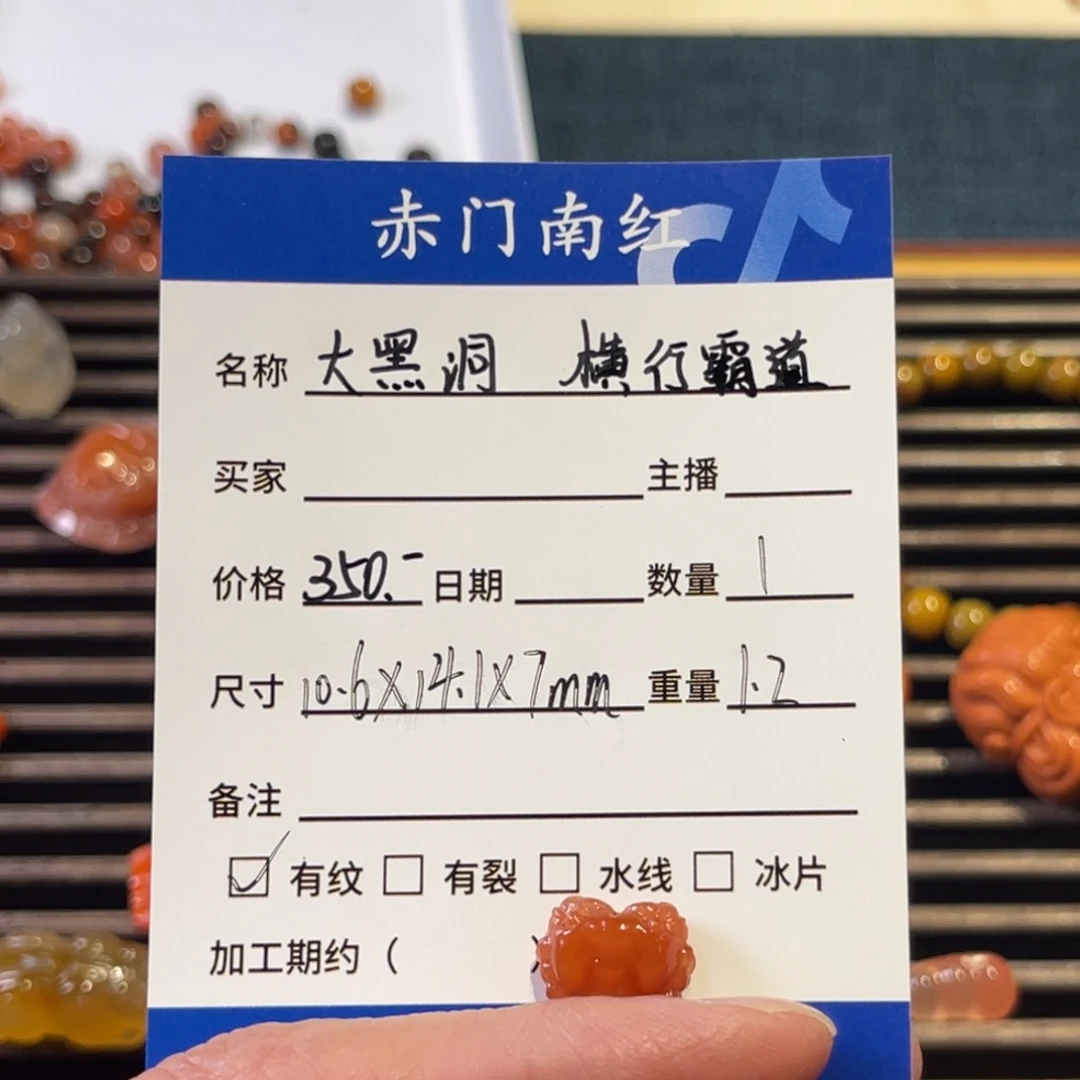 赤门南红
名称 大黑洞 横行霸道
买家 主播
价格 350.- 日期 数量 1
尺寸 10.6X14.1X7mm 重量 1.2
备注
☑ 有纹 ☐ 有裂 ☐ 水线 ☐ 冰片
加工期约 ( )